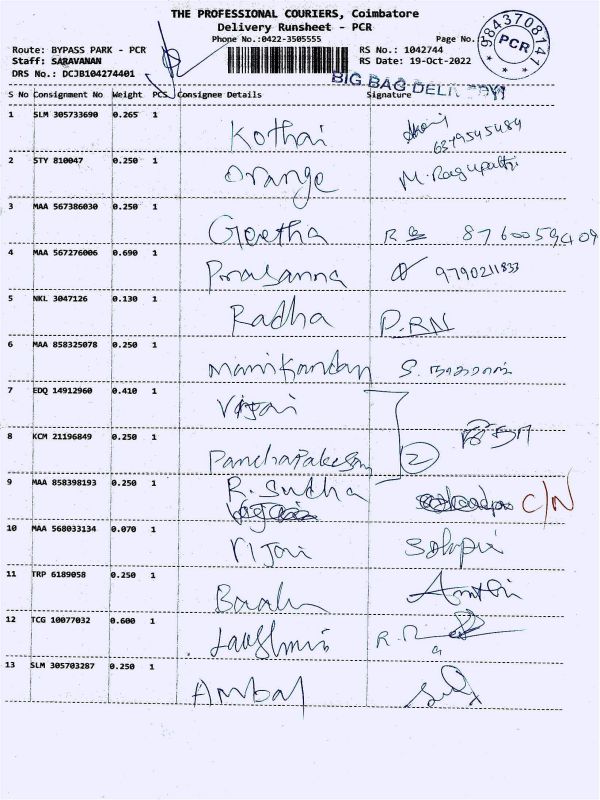 THE PROFESSIONAL COURIERS, Coimbatore
Delivery Runsheet - PCR
Phone No.:0422-3505555
Page No.:
9843708141
PCR
Route: BYPASS PARK - PCR
RS No.: 1042744
Staff: SARAVANAN
RS Date: 19-Oct-2022
DRS No.: DCJB104274401
BIG BAG DELIVERY
S No Consignment No Weight PCS Consignee Details Signature
1 SLM 305733690 0.265 1 Kothai
6379545484
2 STY 810047 0.250 1 Orange M. Ragupathi
3 MAA 567386030 0.250 1 Geetha 8760059409
4 MAA 567276006 0.690 1 Prasanna 9790211833
5 NKL 3047126 0.130 1 Radha P.RN
6 MAA 858325078 0.250 1 Manikandan
7 EDQ 14912960 0.410 1 Vijai
8 KCM 21196849 0.250 1 Panchapakesan 2
9 MAA 858398193 0.250 1 R. Sudha C/N
10 MAA 568033134 0.070 1 Vijai
11 TRP 6189058 0.250 1
12 TCG 10077032 0.600 1
13 SLM 305703287 0.250 1 Ambal